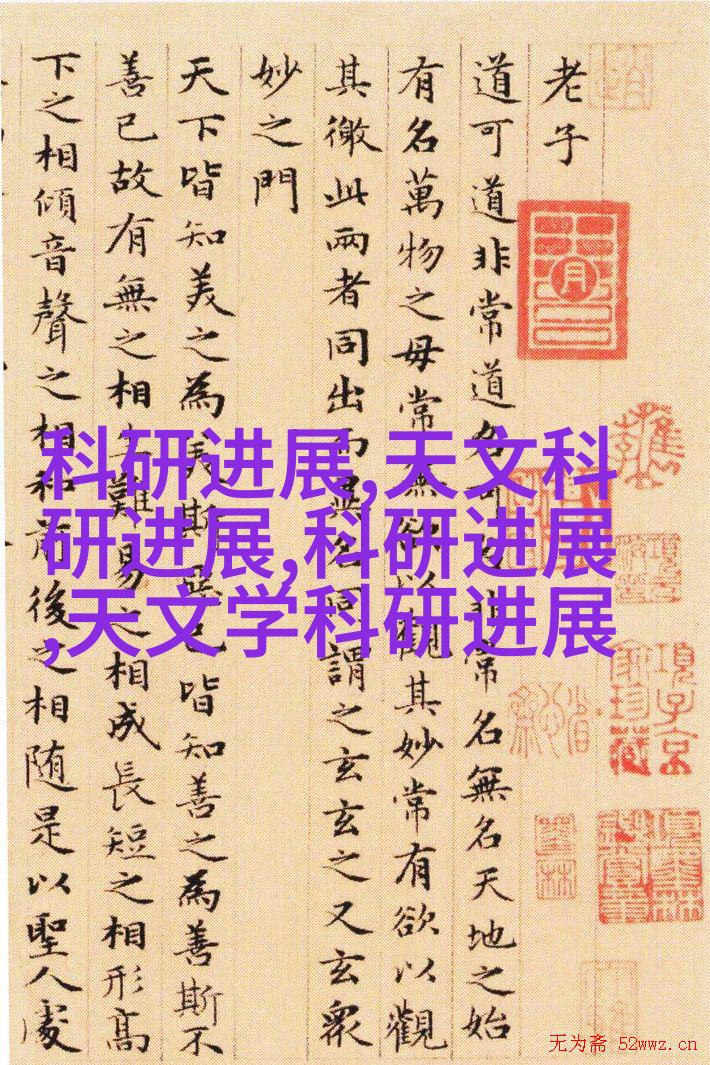 老子
道可道非常道名可名非常名無名天地之始
有名萬物之毋常無欲以觀其妙常有欲以觀
其徼此兩者同出而異名同謂之玄玄之又玄衆
妙之門
天下皆知美之為美斯惡已皆知善之為善斯不
善已故有無之相生難易之相成長短之相形高
下之相傾音聲之相和前後之相随是以聖人處
項子京
家珍藏
科研进展,天文科
研进展,科研进展
,天文学科研进展
无为斋 52wwz.cn